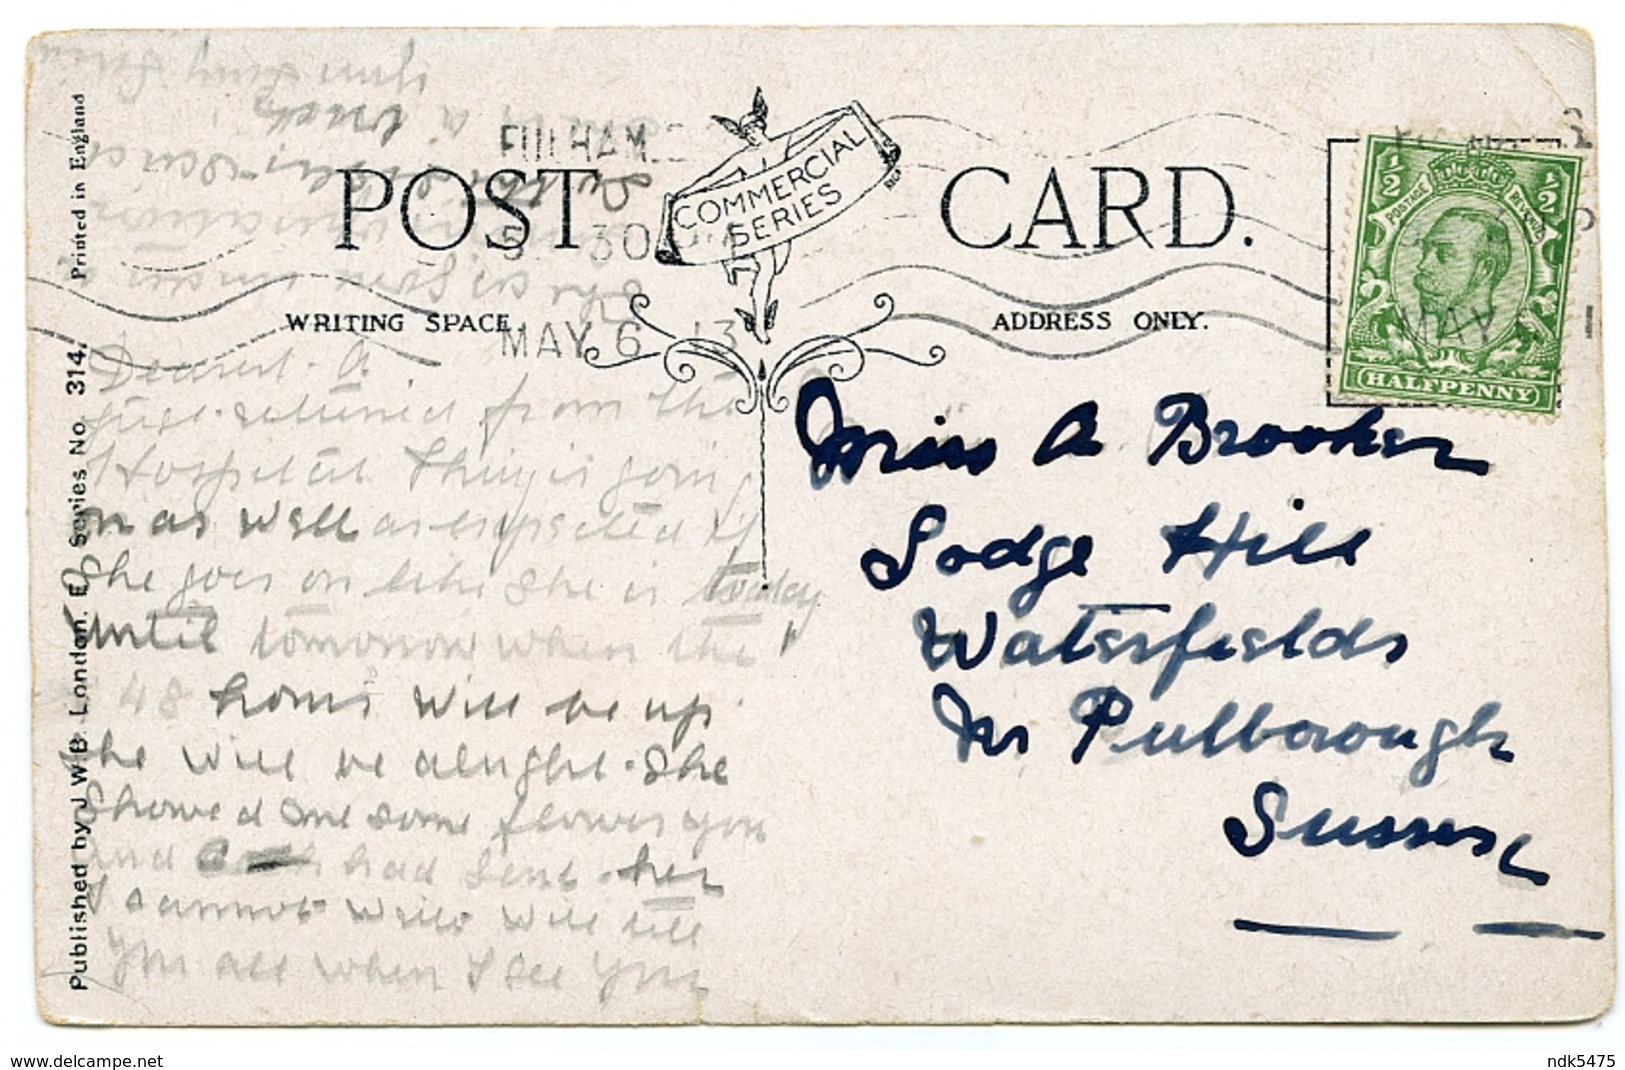 FULHAM
5. 30 PM
MAY 6 13
POST CARD.
COMMERCIAL
SERIES
WRITING SPACE.
ADDRESS ONLY.
½ ½
POSTAGE REVENUE
HALFPENNY
MAY
Printed in England
Published by J.W.B. London. E. Series No. 314.
Dearest. A
just returned from the
Hospital Thing is going
on as well as expected if
She goes on like She is today
until tomorrow when the
48 hours will be up
she will be alright. She
Showed me some flowers you
and had sent her
I cannot write will tell
you all when I see you
Miss A Brooker
Lodge Hill
Waterfields
Nr Pulborough
Sussex
www.delcampe.net
ndk5475